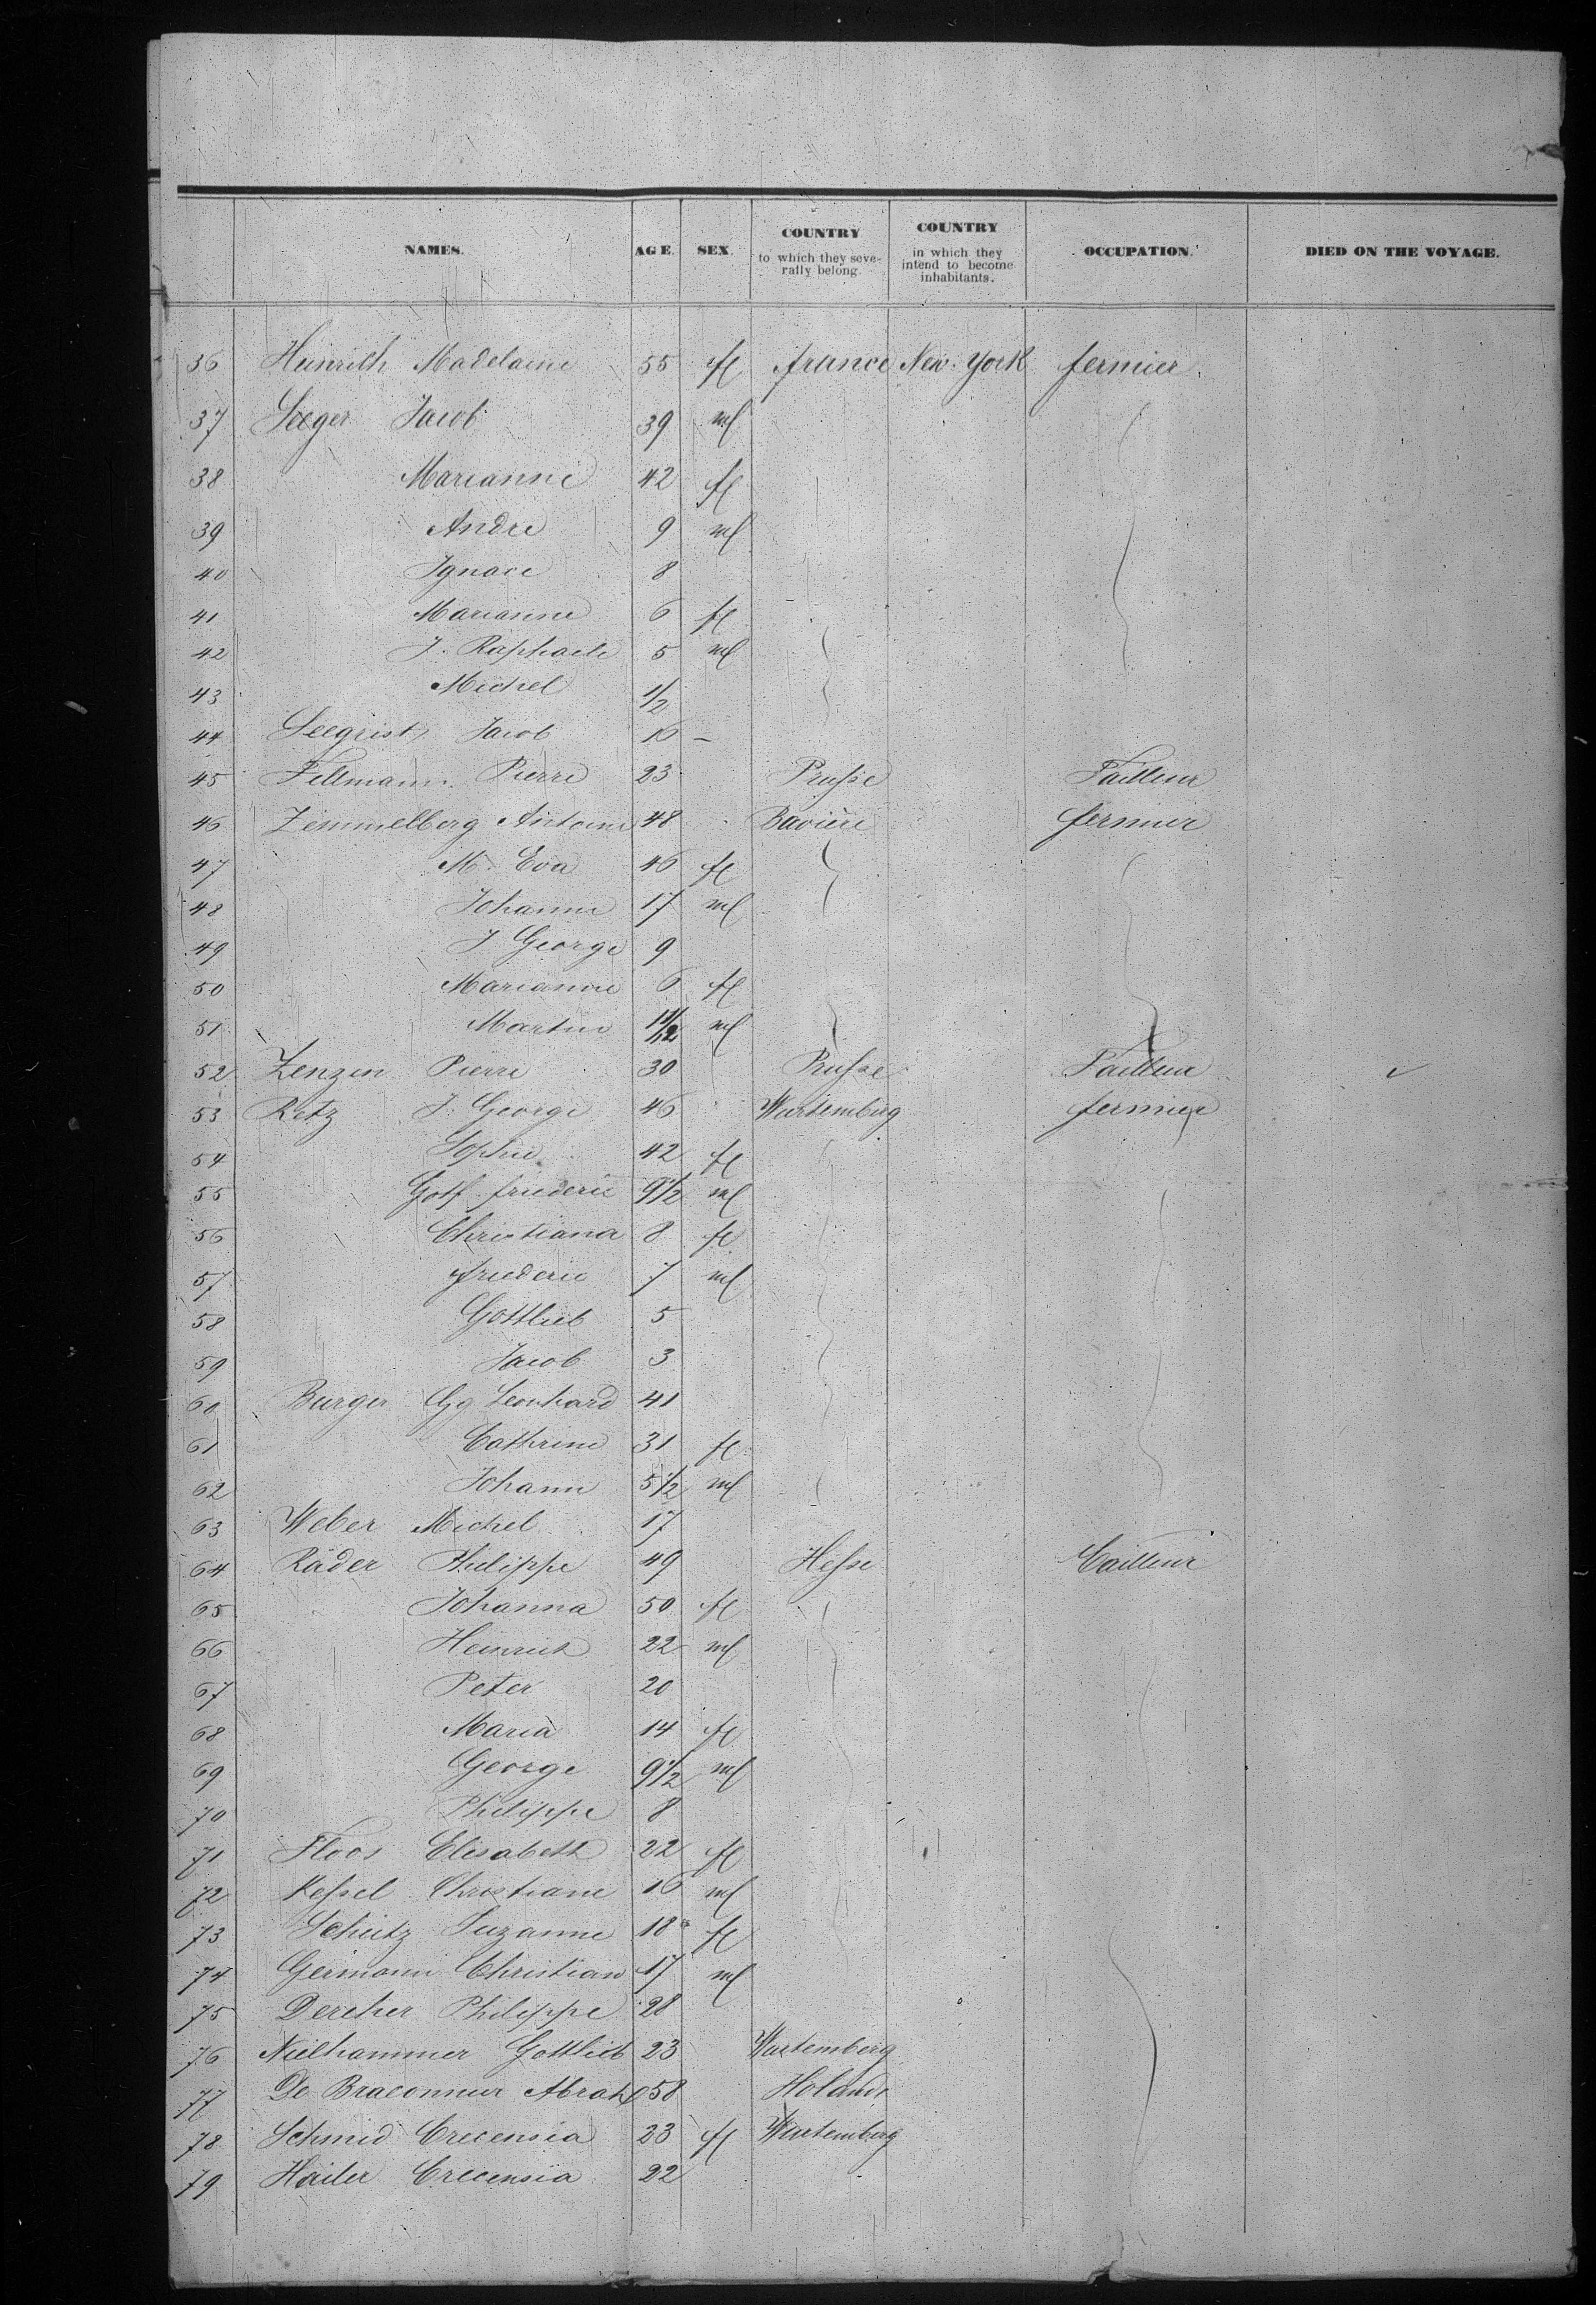 NAMES. AGE. SEX. COUNTRY to which they severally belong. COUNTRY in which they intend to become inhabitants. OCCUPATION. DIED ON THE VOYAGE.
36 Heinrich Madelaine 55 fl france New-York fermier
37 Seeger Jacob 39 ml
38 Marianne 42 fl
39 Andre 9 ml
40 Ignace 8
41 Marianne 6 fl
42 J. Raphaele 5 ml
43 Michel 1/2
44 Seegrist Jacob 16 –
45 Fellmann Pierre 23 Prusse Tailleur
46 Zemmelberg Antoine 48 Baviere fermier
47 M. Eva 46 fl
48 Johanne 17 ml
49 J George 9
50 Marianne 6 fl
51 Martin 11/12 ml
52 Zenzen Pierre 30 Prusse Tailleur ✓
53 Retz J. George 46 Wurtemberg fermier
54 Sophie 42 fl
55 Gotf. friederic 9 1/2 ml
56 Christiana 8 fl
57 friederic 7 ml
58 Gottlieb 5
59 Jacob 3
60 Burger Gg Leonhard 41
61 Cathrine 31 fl
62 Johann 5 1/2 ml
63 Weber Michel 17
64 Räder Philippe 49 Hesse Tailleur
65 Johanna 50 fl
66 Heinrich 22 ml
67 Peter 20
68 Maria 14 fl
69 George 9 1/2 ml
70 Philippe 8
71 Floos Elisabeth 22 fl
72 Kessel Christiane 16 ml
73 Schutz Suzanne 18 fl
74 Germann Christian 17 ml
75 Dercher Philippe 28
76 Nielhammer Gottlieb 23 Wurtemberg
77 De Braconnier Abrah 58 Holande
78 Schmid Crecensia 23 fl Wurtemberg
79 Hailer Crecensia 22